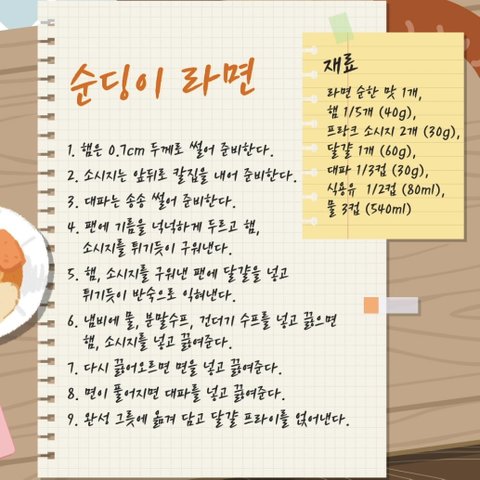 순딩이 라면
1. 햄은 0.7cm 두께로 썰어 준비한다.
2. 소시지는 앞뒤로 칼집을 내어 준비한다.
3. 대파는 송송 썰어 준비한다.
4. 팬에 기름을 넉넉하게 두르고 햄,
소시지를 튀기듯이 구워낸다.
5. 햄, 소시지를 구워낸 팬에 달걀을 넣고
튀기듯이 반숙으로 익혀낸다.
6. 냄비에 물, 분말수프, 건더기 수프를 넣고 끓으면
햄, 소시지를 넣고 끓여준다.
7. 다시 끓어오르면 면을 넣고 끓여준다.
8. 면이 풀어지면 대파를 넣고 끓여준다.
9. 완성 그릇에 옮겨 담고 달걀 프라이를 얹어낸다.
재료
라면 순한 맛 1개,
햄 1/5개 (40g),
프랑크 소시지 2개 (30g),
달걀 1개 (60g),
대파 1/3컵 (30g),
식용유 1/2컵 (80ml),
물 3컵 (540ml)